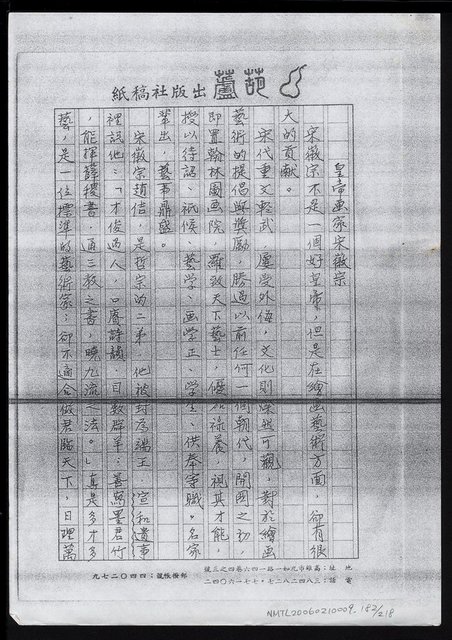 葫蘆出版社稿紙
皇帝画家宋徽宗
宋徽宗不是一個好皇帝，但是在繪画藝術方面，卻有很
大的貢献。
宋代重文軽武，屢受外侮，文化則深然可觀，對於繪画
藝術的提倡與獎勵，勝過以前任何一個朝代，開國之初，
即置翰林圖画院，羅致天下藝士，優加祿養，視其才能，
授以待詔、祇候、藝学、画学正、学生、供奉等職。名家
輩出，藝事鼎盛。
宋徽宗趙佶，是哲宗的二弟，他被封為端王，宣和遺事
裡説他：「才俊過人，口賡詩韻，目数群羊；善寫墨君竹
，能揮薛稷書，通三教之書，曉九流之法。」真是多才多
藝，是一位標準的藝術家；卻不適合做君臨天下，日理萬
地址：高雄市九如一路一四六巷四之三號
電話：三八四二八二七・七七一六〇四二
郵撥帳號：四四〇二七九
NMTL20060210009_182/218